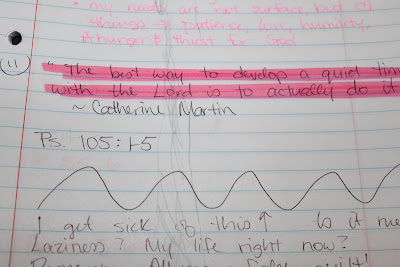 • my needs are not surface, but of
things → patience, love, humility,
hunger & thirst for God
11
"The best way to develop a quiet tim
with the Lord is to actually do it
~ Catherine Martin
Ps. 105:1-5
I get sick of this ↑ Is it me
Laziness? My life right now?